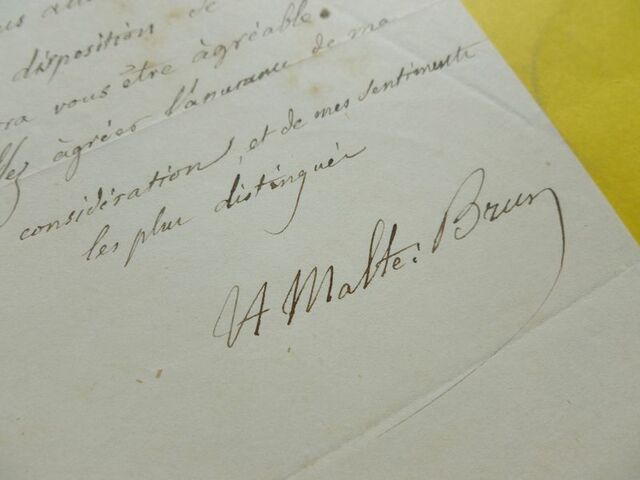 disposition de
vous être àgréable.
àgréer l'assurance de ma
considération, et de mes sentiments
les plus distingués
VA Malte-Brun